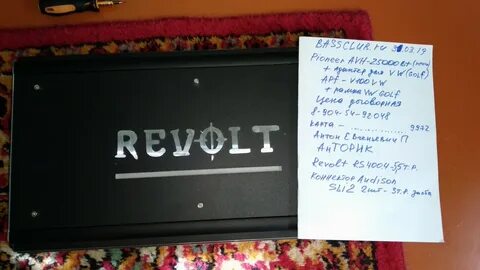 REVOLT
BASSCLUB.ru 31.03.19
Pioneer AVH-2500BT
+ адаптер для VW (GOLF)
+ рамка VW GOLF
Цена договорная
8-904-54-92048
карта - 9972
Антон Евгеньевич П
АНТОРИК
Revolt RS400.4 - 5,5т.р.
Коннектор Audison
SLI2 2шт - 3т.р.